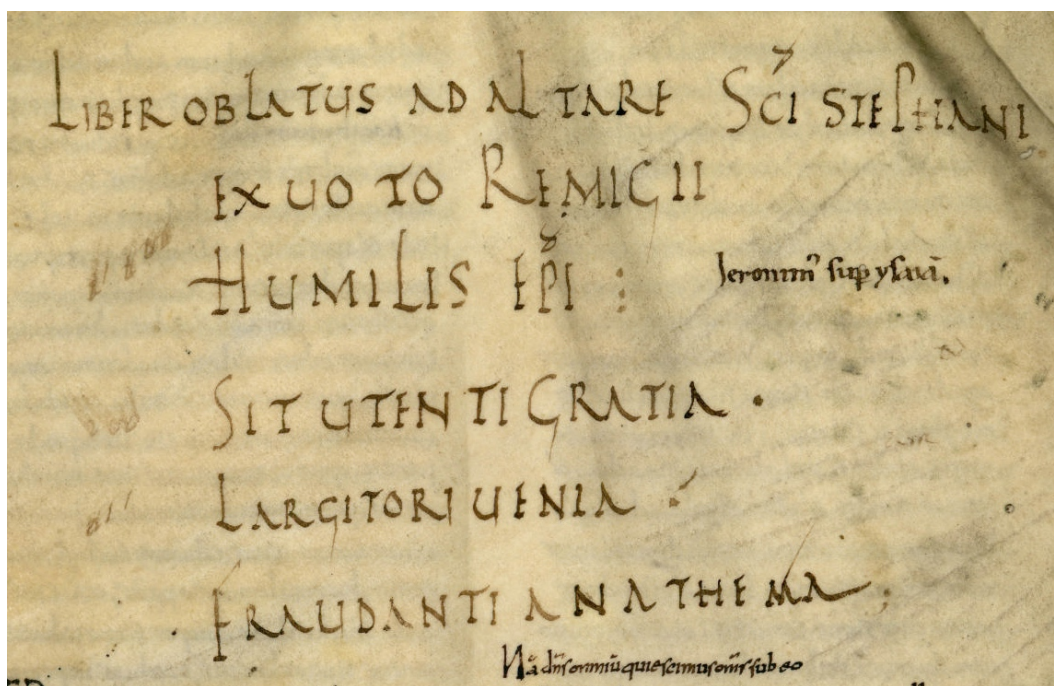 LIBER OBLATUS AD ALTARE SC̄I STEPHANI
EX UOTO REMIGII
HUMILIS EP̄I :
Jeronim᾽ sup ysaiā.
SIT UTENTI GRATIA .
LARGITORI UENIA .
FRAUDANTI ANATHEMA